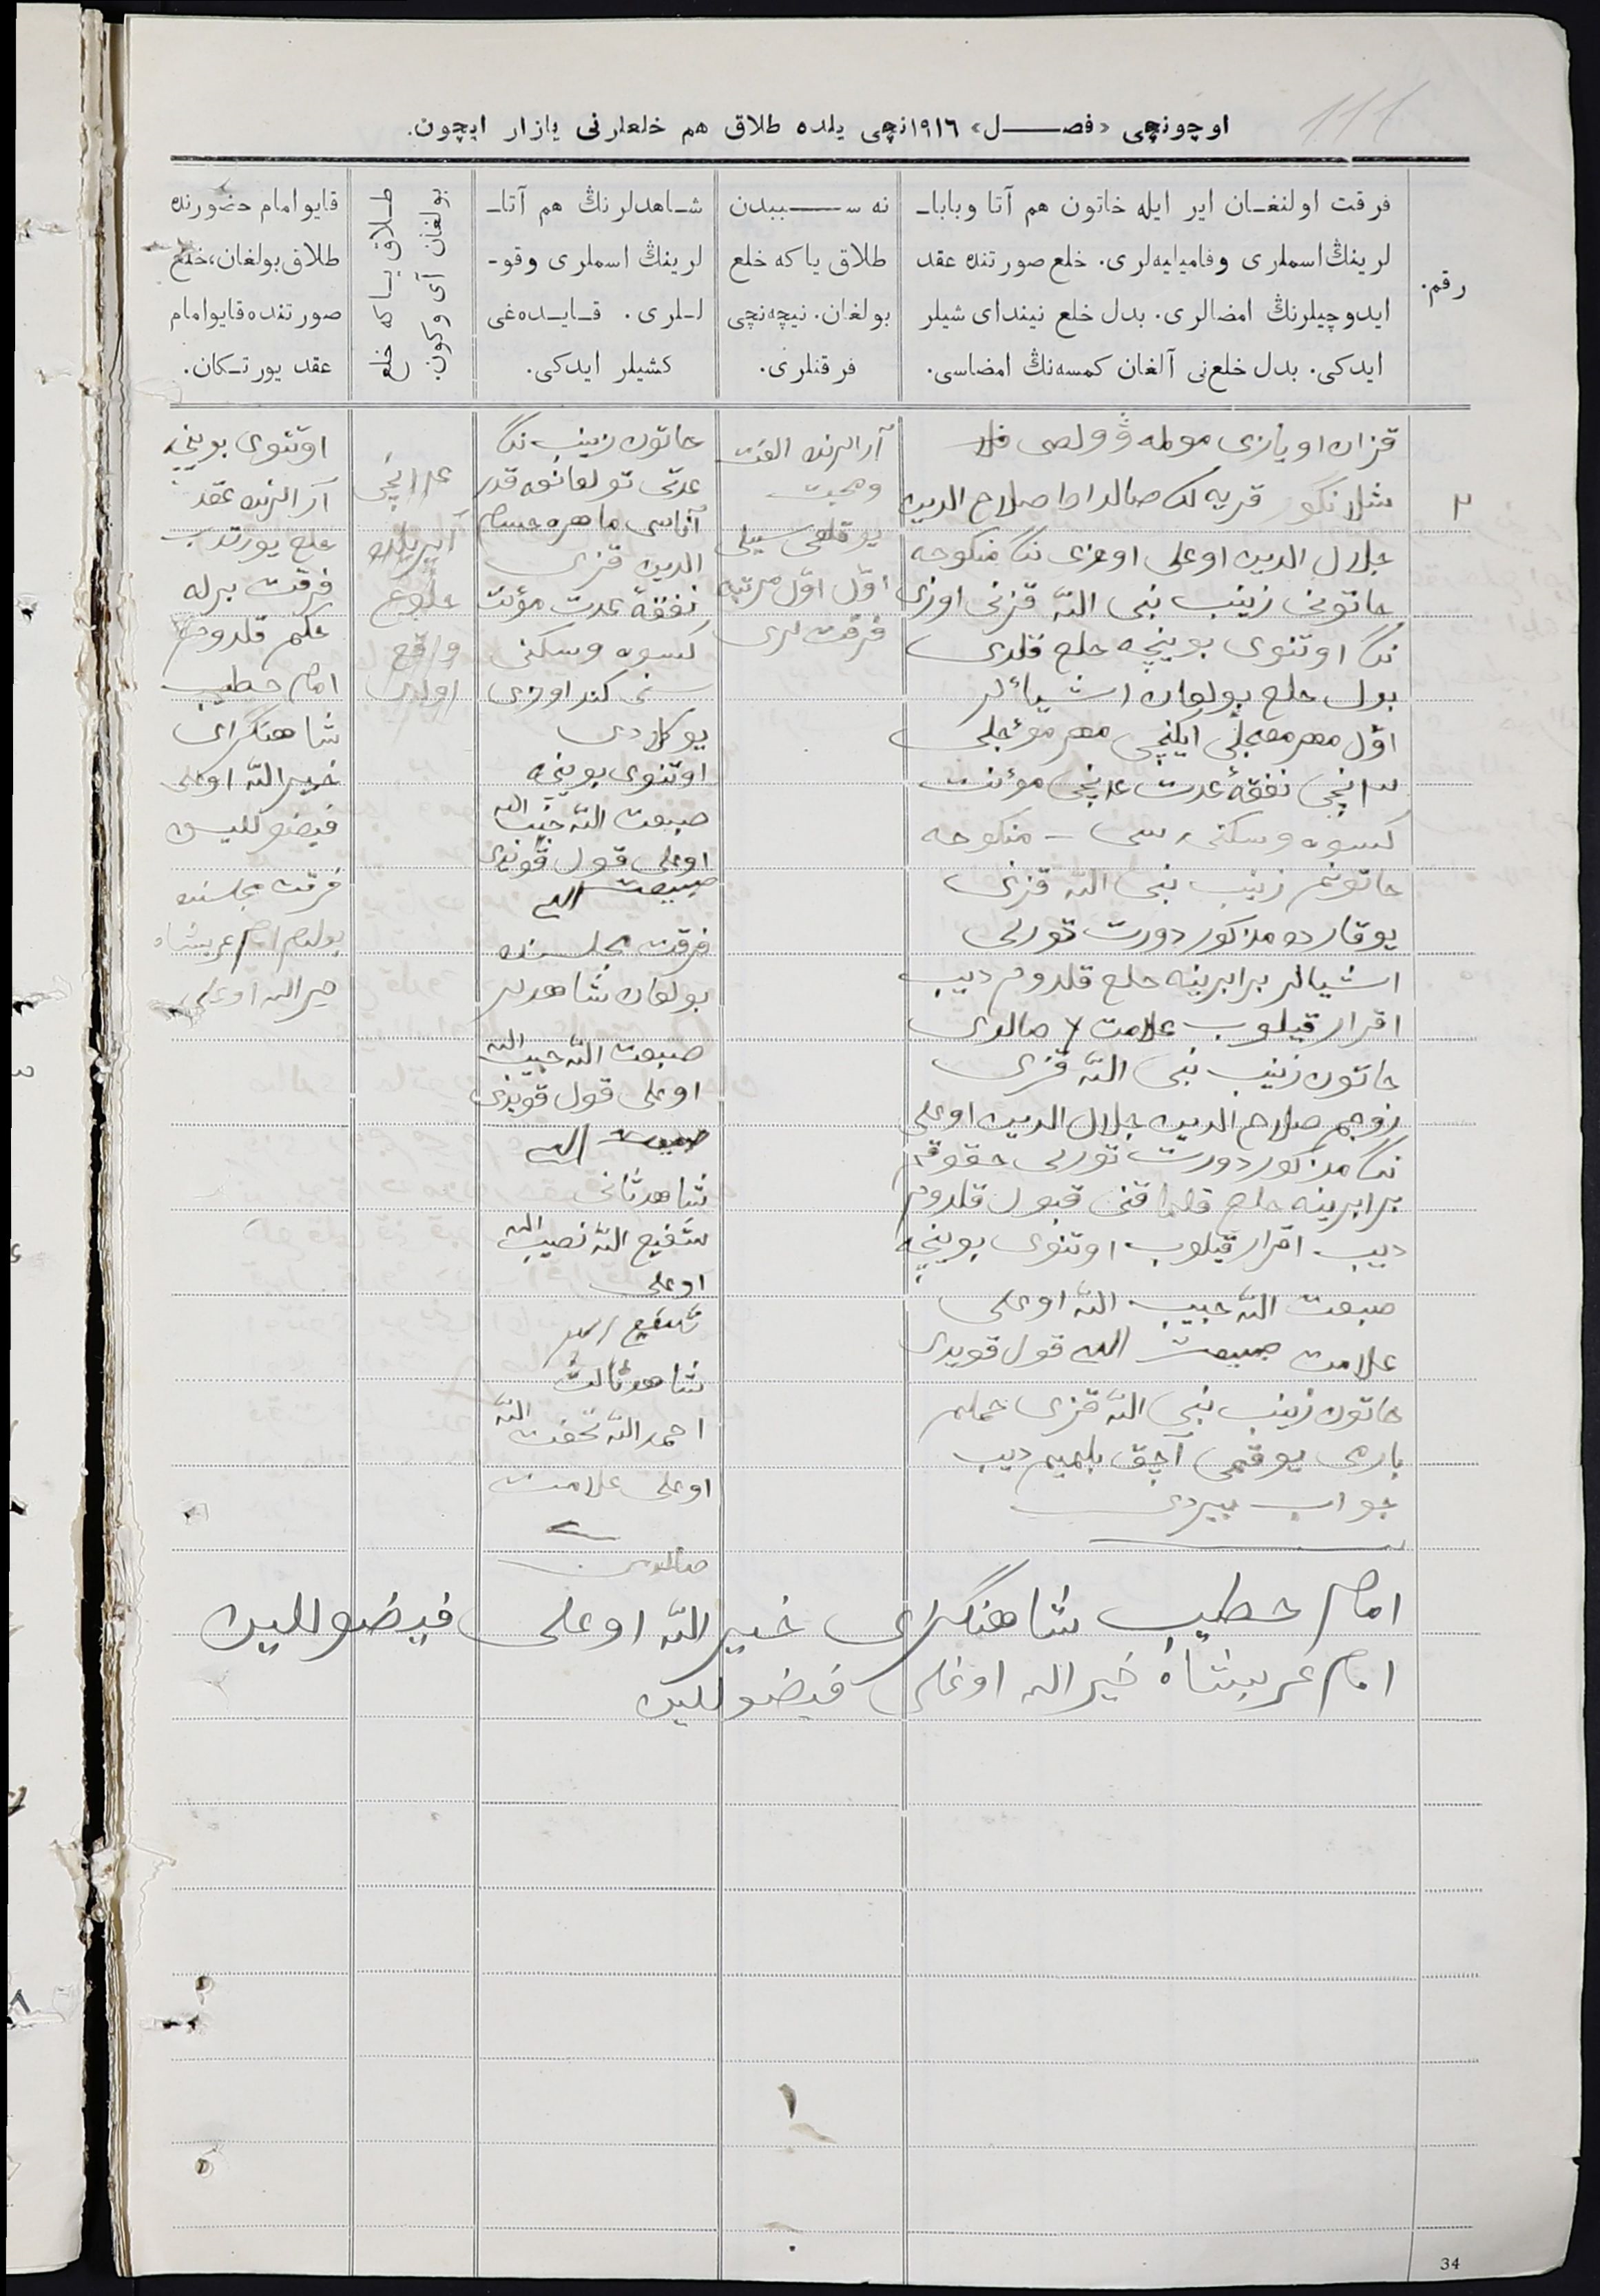 111
اوچونچی «فصل» ١٩١٦نچی یلده طلاق هم خلعلرنی یازار ایچون.
رقم.
فرقت اولنغان ایر ایله خاتون هم آتا وبابا-
لرینڭ اسملری وفامیلیه‌لری. خلع صورتنده عقد
ایدوچیلرنڭ امضالری. بدل خلع نیندای شیلر
ایدکی. بدل خلع‌نی آلغان کمسه‌نڭ امضاسی.
نه سببدن
طلاق یاکه خلع
بولغان. نیچه‌نچی
فرقتلری.
شاهدلرنڭ هم آتا-
لرینڭ اسملری وقو-
للری. قایده‌غی
کشیلر ایدکی.
طلاق یاکه خلع
بولغان آی وکون
قایو امام حضورنده
طلاق بولغان، خلع
صورتنده قایو امام
عقد یورتکان.
٢
قزان اویازی
قریه صلاح الدین
جلال الدین اوغلی اوزی نڭ منکوحه
خاتونی زینب نبی الله قزنی اوزی
نڭ اوتنوی بوینچه خلع قلدی
بدل خلع بولغان اشیالر
اول مهر معجلی ایکنچی مهر مؤجلی
٣نچی نفقهٔ عدت ٤نچی مؤنت
کسوه وسکنی منکوحه
خاتونم زینب نبی الله قزی
یوقارده مذکور دورت تورلی
اشیالر برابرینه خلع قلدوم دیب
اقرار قیلوب علامت صالدی
خاتون زینب نبی الله قزی
زوجم صلاح الدین جلال الدین اوغلی
نڭ مذکور دورت تورلی حقوقم
برابرینه خلع قلماقنی قبول قلدوم
دیب اقرار قیلوب اوتنوی بوینچه
صبغت الله حبیب الله اوغلی
علامت صبغت الله قول قویدی
خاتون زینب نبی الله قزی حملم
بارمی یوقمی آچق بلمیم دیب
جواب بیردی
آرالرنده الفت
ومحبت
یوقلغی سببلی
اول اول مرتبه
فرقتلری
خاتون زینب نڭ
عدتی تولغانغه قدر
آناسی ماهره حسام
الدین قزی
نفقهٔ عدت مؤنت
کسوه وسکنی
اوزی
یوکلادی
اوتنوی بوینچه
صبغت الله حبیب الله
اوغلی قول قویدی
صبغت الله
فرقت مجلسنده
بولغان شاهدلر
صبغت الله حبیب الله
اوغلی قول قویدی
صبغت الله
شاهد ثانی
شفیع الله نصیب الله
اوغلی
شفیع الله
شاهد ثالث
احمد الله تحفت الله
اوغلی علامت
صالدی
٤نچی
آپریلده
خلوع
واقع
اولدی
اوتنوی بوینچه
آرالرنده عقد
خلع یورتدب
فرقت برله
حکم قلدوم
امام خطیب
شاهنگرای
خیر الله اوغلی
فیضوللین
فرقت مجلسنده
بولدم امام عربشاه
خیر الله اوغلی
امام خطیب شاهنگرای خیر الله اوغلی فیضوللین
امام عربشاه خیر الله اوغلی فیضوللین
34